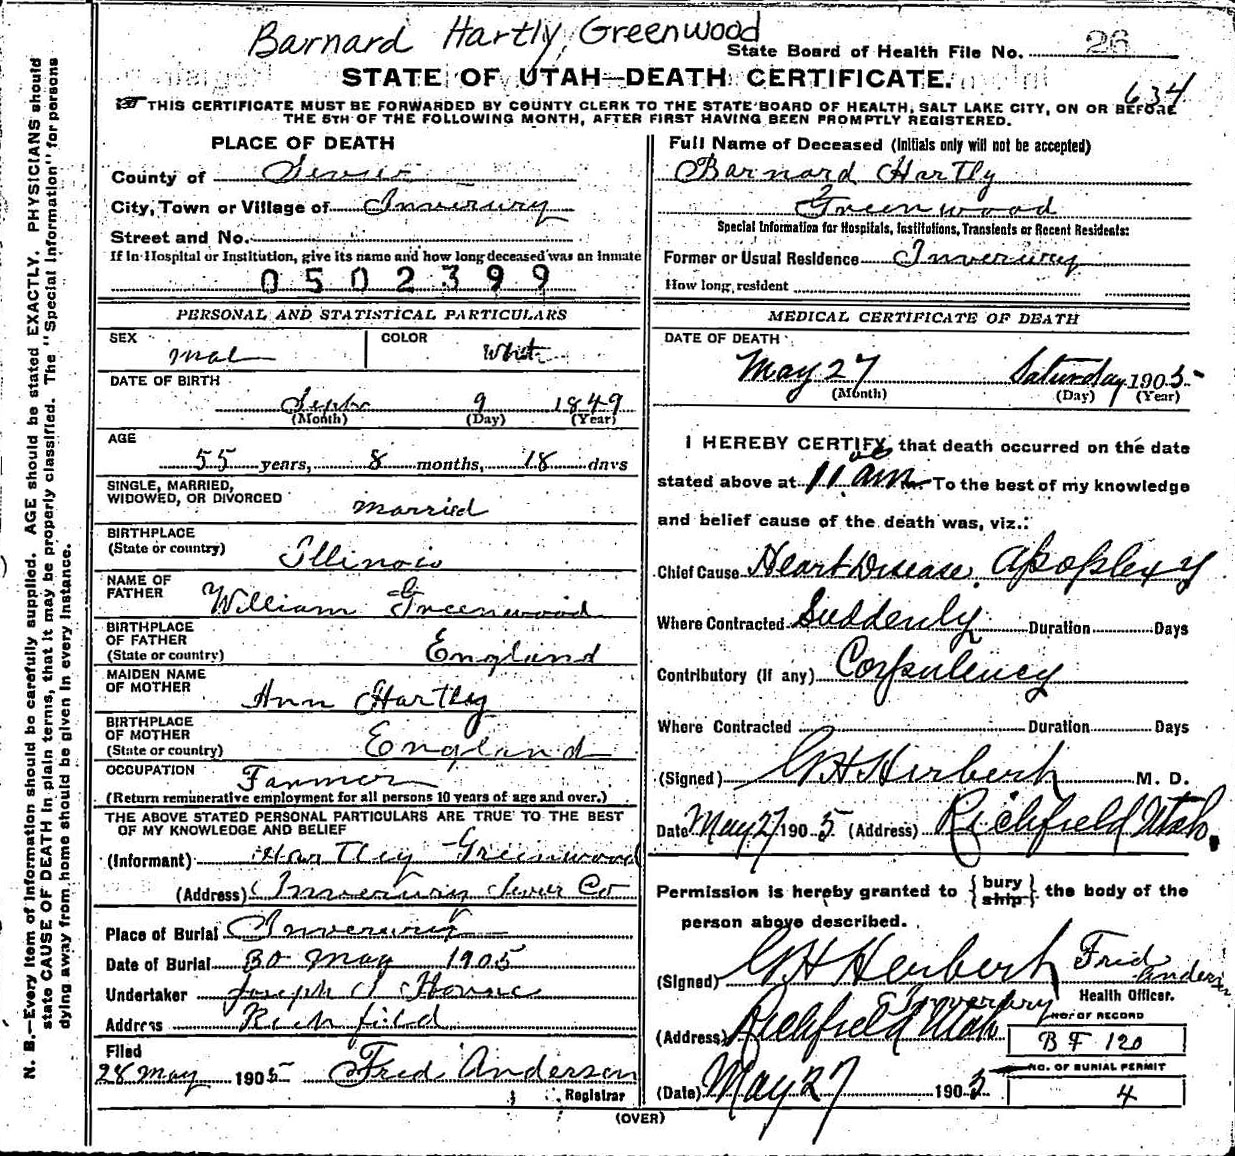 Barnard Hartly Greenwood
State Board of Health File No. 26
STATE OF UTAH—DEATH CERTIFICATE.
634
THIS CERTIFICATE MUST BE FORWARDED BY COUNTY CLERK TO THE STATE BOARD OF HEALTH, SALT LAKE CITY, ON OR BEFORE
THE 5TH OF THE FOLLOWING MONTH, AFTER FIRST HAVING BEEN PROMPTLY REGISTERED.
N. B.—Every item of information should be carefully supplied. AGE should be stated EXACTLY. PHYSICIANS should
state CAUSE OF DEATH in plain terms, that it may be properly classified. The "Special Information" for persons
dying away from home should be given in every instance.
PLACE OF DEATH
County of Sevier
City, Town or Village of Inverury
Street and No.
If in Hospital or Institution, give its name and how long deceased was an inmate
0502399
PERSONAL AND STATISTICAL PARTICULARS
SEX mal
COLOR White
DATE OF BIRTH
Septr 9 1849
(Month) (Day) (Year)
AGE
55 years, 8 months, 18 days
SINGLE, MARRIED,
WIDOWED, OR DIVORCED married
BIRTHPLACE
(State or country) Illinois
NAME OF
FATHER William Greenwood
BIRTHPLACE
OF FATHER
(State or country) England
MAIDEN NAME
OF MOTHER Ann Hartley
BIRTHPLACE
OF MOTHER
(State or country) England
OCCUPATION Farmer
(Return remunerative employment for all persons 10 years of age and over.)
THE ABOVE STATED PERSONAL PARTICULARS ARE TRUE TO THE BEST
OF MY KNOWLEDGE AND BELIEF
(Informant) Hartley Greenwood
(Address) Inverury Sevier Co
Place of Burial Inverury
Date of Burial 30 May 1905
Undertaker Joseph
Address Richfield
Filed
28 May 1905 Fred Andersen
Registrar
Full Name of Deceased (Initials only will not be accepted)
Barnard Hartly
Greenwood
Special Information for Hospitals, Institutions, Transients or Recent Residents:
Former or Usual Residence Inverury
How long resident
MEDICAL CERTIFICATE OF DEATH
DATE OF DEATH
May 27 Saturday 1905
(Month) (Day) (Year)
I HEREBY CERTIFY, that death occurred on the date
stated above at 11 am. To the best of my knowledge
and belief cause of the death was, viz.:
Chief Cause Heart Disease, Apoplexy
Where Contracted Suddenly Duration Days
Contributory (If any) Corpulency
Where Contracted Duration Days
(Signed) G H Herbert M. D.
Date May 27 1905 (Address) Richfield Utah.
Permission is hereby granted to {bury ship} the body of the
person above described.
(Signed) G H Herbert Fred Andersen
Health Officer.
(Address) Richfield Utah Inverury
(Date) May 27 1905
NO. OF RECORD
B F 120
NO. OF BURIAL PERMIT
4
(OVER)